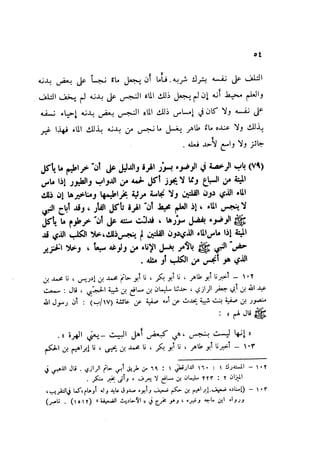 ٥٤
التلف على نفسه بترك شربه. فأما أن يجعل ماءً نجساً على بعض بدنه
والعلم محيط أنه إن لم يجعل ذلك الماء النجس على بدنه لم يخف التلف
على نفسه ولا كان في إمساس ذلك الماء النجس بعض بدنه إحياء نفسه
بذلك ولا عنده ماءٌ طاهر يغسل ما نجس من بدنه بذلك الماء فهذا غير
جائز ولا واسع لأحد فعله.
(٧٩) باب الرخصة في الوضوء بسؤر الهرة والدليل على أن خراطيم ما يأكل
الميتة من السباع ومما لا يجوز أكل لحمه من الدواب والطيور إذا ماس
الماء الذي دون القلتين ولا نجاسة مرئية بخراطيمها ومناخيرها إن ذلك
لا ينجس الماء، إذ العلم محيط أن الهرة تأكل الفأر، وقد أباح النبي
ﷺ الوضوء بفضل سؤرها، فدلت سنته على أن خرطوم ما يأكل
الميتة إذا ماس الماء الذي دون القلتين لم ينجس ذلك، خلا الكلب الذي قد
حض النبي ﷺ بالأمر بغسل الإناء من ولوغه سبعاً، وخلا الخنزير
الذي هو أنجس من الكلب أو مثله.
١٠٢ - أخبرنا أبو طاهر، نا أبو بكر، نا أبو حاتم محمد بن إدريس، نا محمد بن
عبد الله بن أبي جعفر الرازي، حدثنا سليمان بن مسافع بن شيبة الحجبي، قال: سمعت
منصور بن صفية بنت شيبة يحدث عن أمه صفية عن عائشة (١٧/ب): أن رسول الله
ﷺ قال لهم:
«إنها ليست بنجس، هي كبعض أهل البيت - يعني الهرة».
١٠٣ - أخبرنا أبو طاهر، نا أبو بكر، نا محمد بن يحيى، نا إبراهيم بن الحكم
١٠٢ - المستدرك ١: ١٦٠ الدارقطني ١: ٦٩ من طريق أبي حاتم الرازي. قال الذهبي في
الميزان ٢: ٢٢٣ سليمان بن مسافع لا يعرف، وأتى بخبر منكر.
١٠٣ - (إسناده ضعيف. إبراهيم بن حكم ضعيف وأبوه صدوق عابد وله أوهام، كما في التقريب،
ورواه ابن ماجه وغيره، وهو مخرج في «الأحاديث الضعيفة» (١٥١٢) . ناصر)